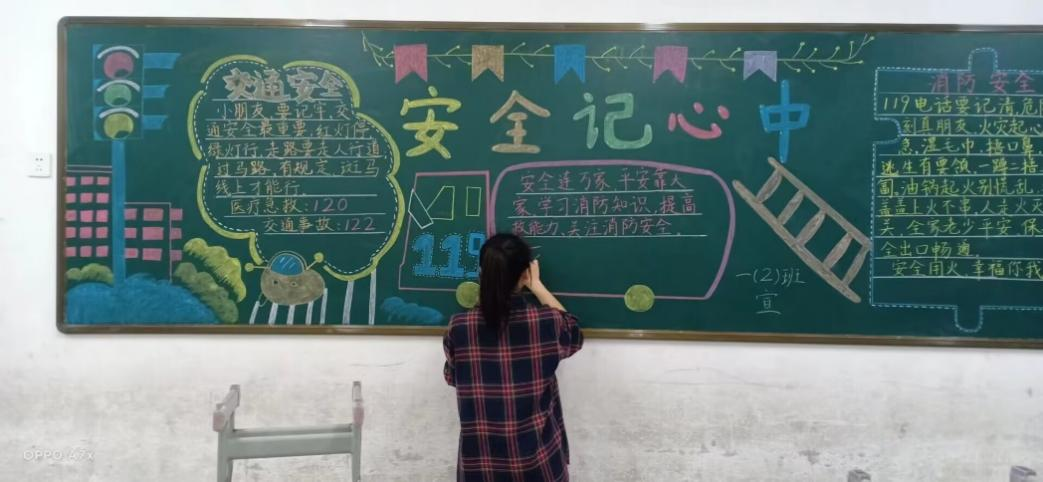 安全记心中
交通安全
小朋友,要记牢,交
通安全最重要,红灯停
绿灯行,走路要走人行道
过马路,有规定,斑马
线上才能行.
医疗急救:120
交通事故:122
119
安全连万家,平安靠大
家,学习消防知识,提高
能力,关注消防安全.
一(2)班
宣
消防安全
119电话要记清,危
刻真朋友,火灾起心
急,湿毛巾,捂口鼻,
逃生有要领,一蹲捂
油锅起火别慌乱.
盖盖上火不串,人走火灭
关,全家老少平安,保
全出口畅通.
安全用火,幸福你我
OPPO A7x